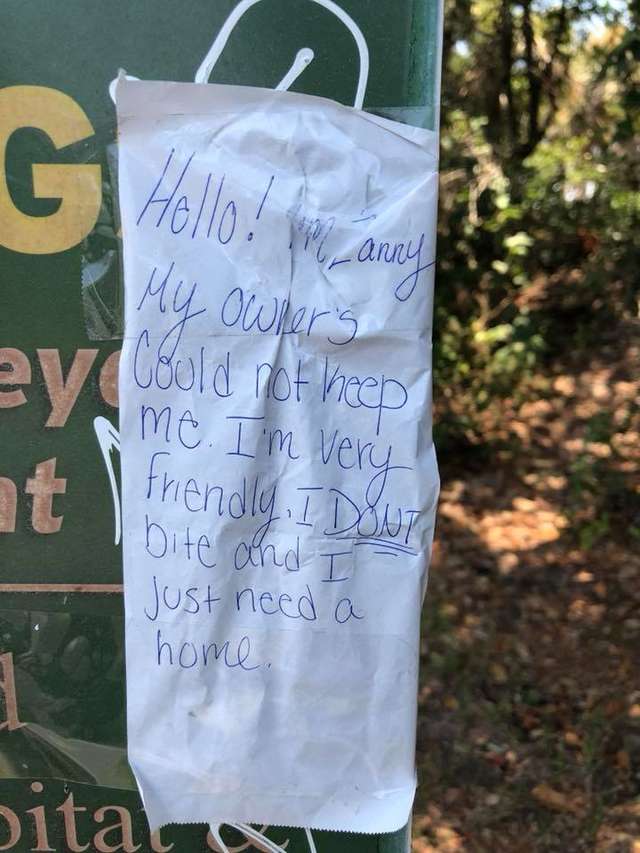 G
Hello! I'm Zanny
My owner's
Could not keep
me. I'm very
friendly. I DONT
bite and I
just need a
home.
eye
nt
d
bital &